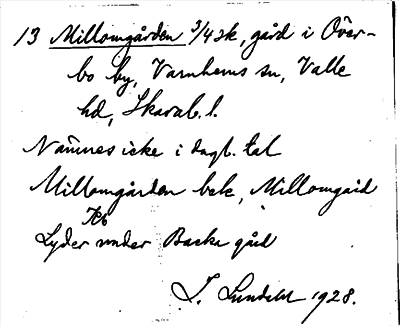 13 Millomgården 3/4 sk, gård i Över-
bo by, Varnhems sn, Valle
hd, Skarab. l.
Nämnes icke i dagl. tal
Millomgården bek, Millomgård
Jeb
Lyder under Backa gård
J. Lundahl 1928.